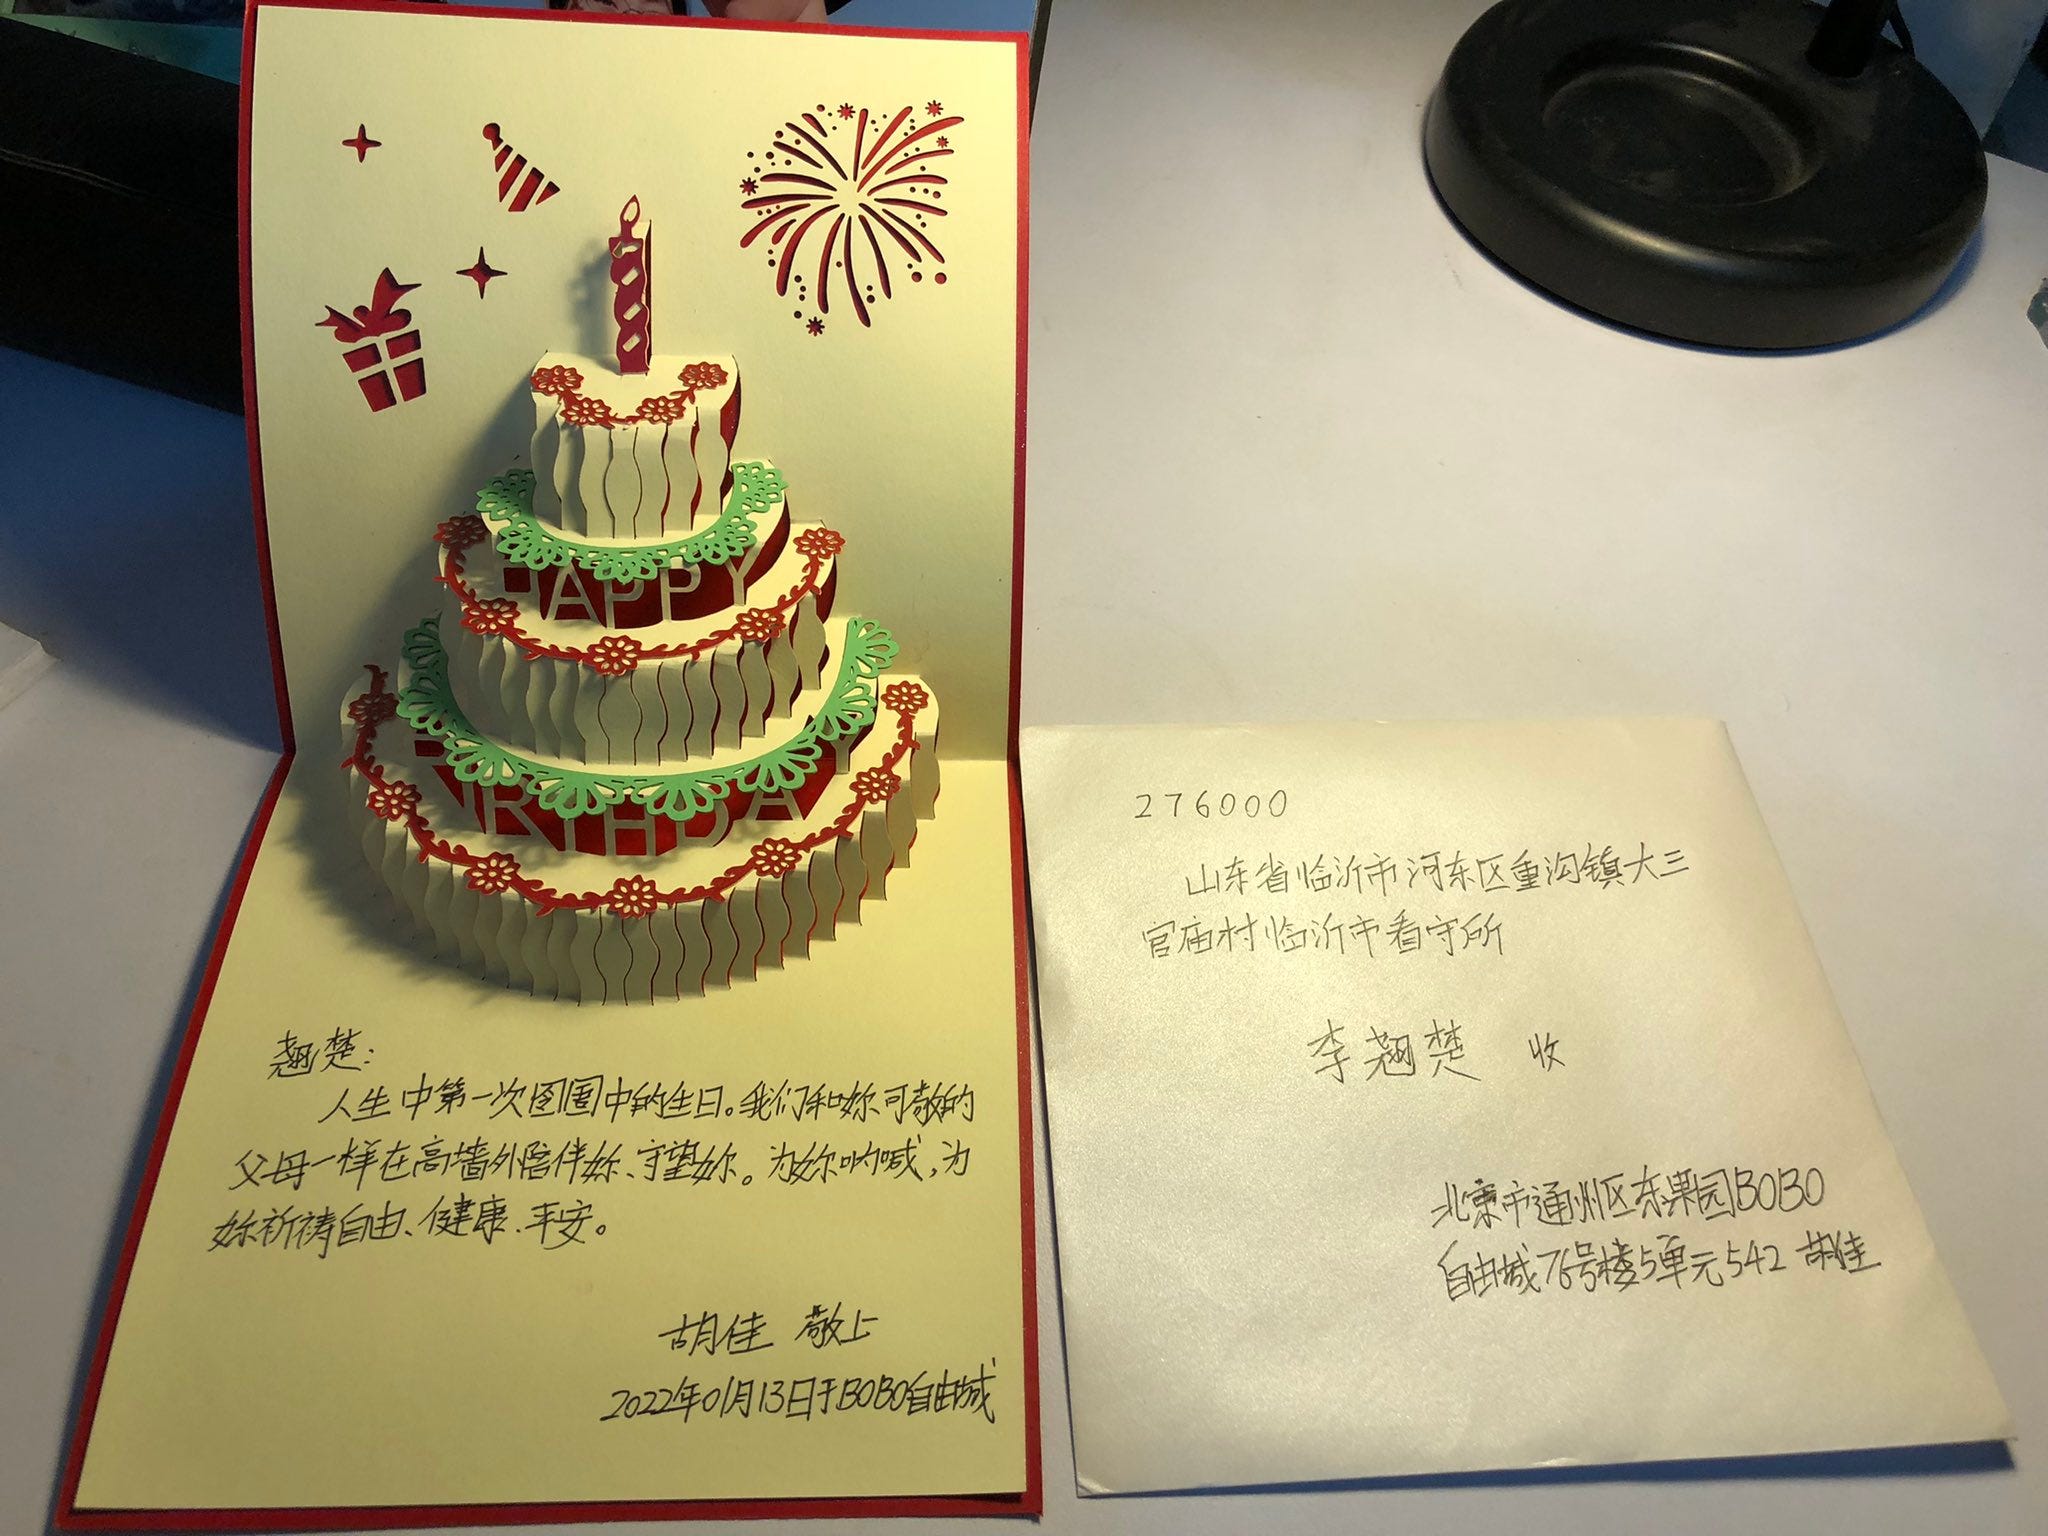 HAPPY
BIRTHDAY
翘楚:
人生中第一次囹圄中的生日。我们和妳可敬的
父母一样在高墙外陪伴妳、守望妳。为妳呐喊,为
妳祈祷自由、健康、平安。
胡佳 敬上
2022年01月13日于BOBO自由城
276000
山东省临沂市河东区重沟镇大三
官庙村临沂市看守所
李翘楚 收
北京市通州区东果园BOBO
自由城76号楼5单元542 胡佳